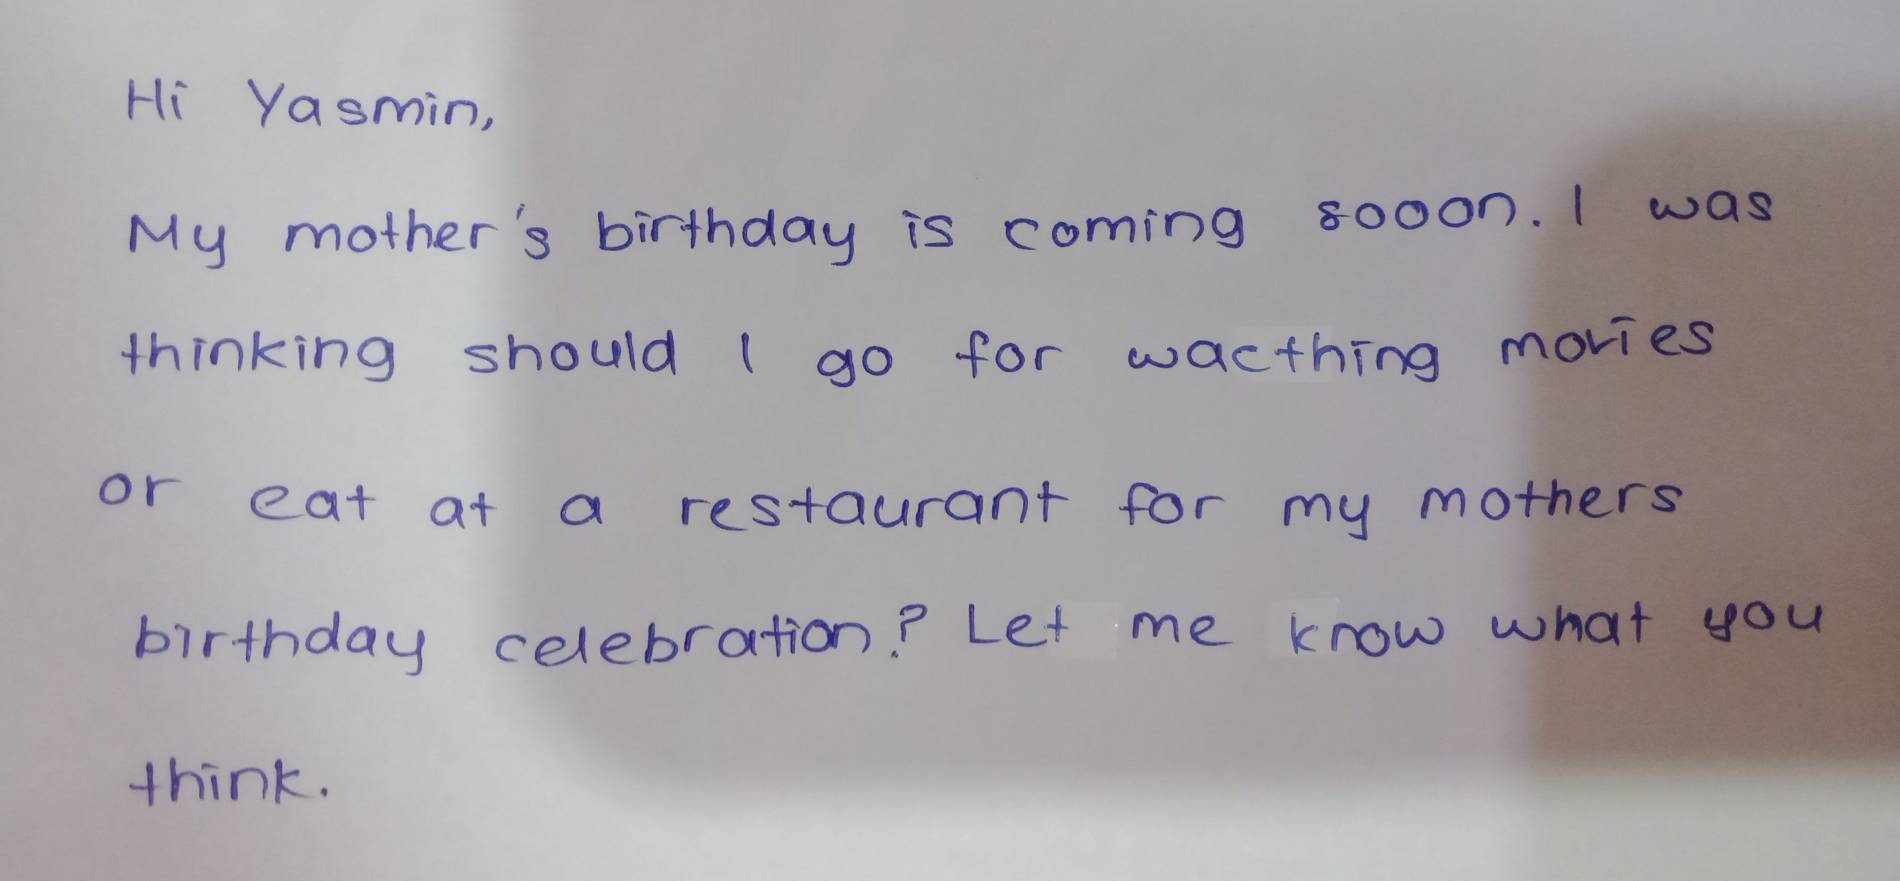 Hi Yasmin,
My mother's birthday is coming sooon. I was
thinking should I go for wacthing movies
or eat at a restaurant for my mothers
birthday celebration? Let me know what you
think.